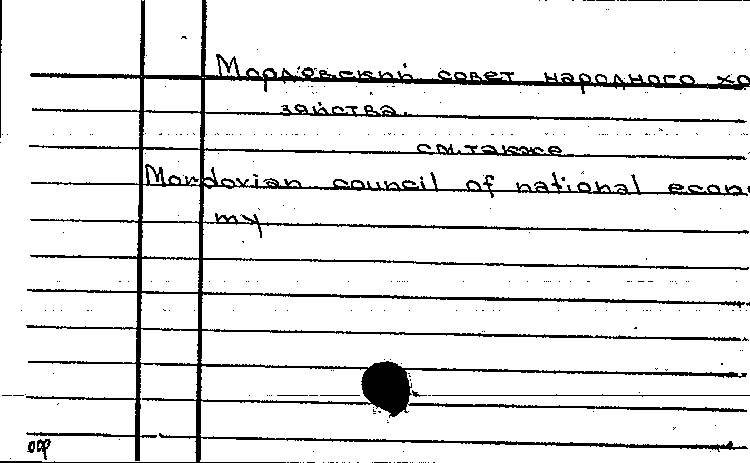 Мордовский совет народного хо
зяйства.
см. также
Mordovian council of national econo
my